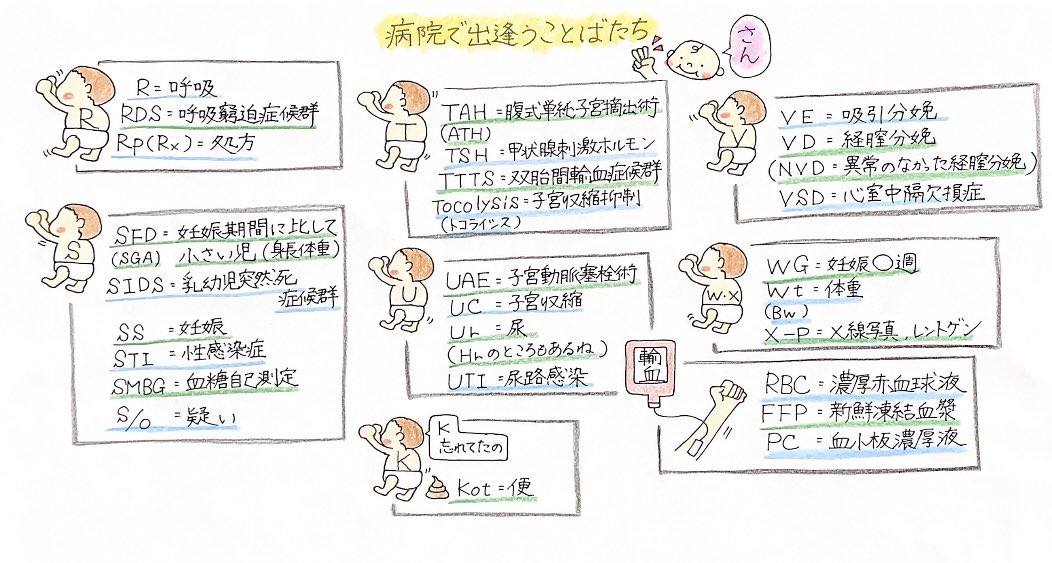 病院で出逢うことばたち
さん
R
R=呼吸
RDS=呼吸窮迫症候群
Rp(Rx)=処方
S
SFD=妊娠期間に比して
(SGA) 小さい児(身長体重)
SIDS=乳幼児突然死
症候群
SS =妊娠
STI =性感染症
SMBG=血糖自己測定
S/O =疑い
T
TAH=腹式単純子宮摘出術
(ATH)
TSH=甲状腺刺激ホルモン
TTTS=双胎間輸血症候群
Tocolysis=子宮収縮抑制
(トコライシス)
U
UAE=子宮動脈塞栓術
UC =子宮収縮
Uh =尿
(Hhのところもあるね)
UTI=尿路感染
K
K
忘れてたの
Kot=便
V
VE =吸引分娩
VD =経腟分娩
(NVD=異常のなかった経腟分娩)
VSD=心室中隔欠損症
W・X
WG=妊娠〇週
Wt=体重
(Bw)
X-P=X線写真,レントゲン
輸血
RBC=濃厚赤血球液
FFP=新鮮凍結血漿
PC =血小板濃厚液